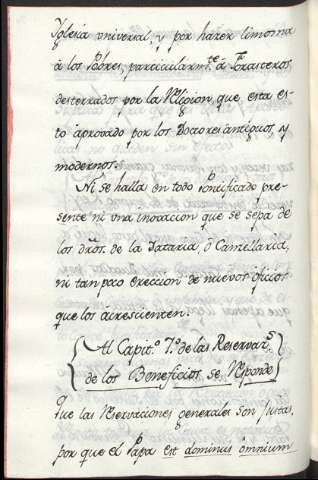 Iglesia vniversal, y por hazer limosna
à los Pobres, particularm.te à Forasteros,
desterrados por la Religion, que esta es-
to aprovado por los Doctores antiguos, y
modernos.
Ni se halla en todo Pontificado pre-
sente ni vna inovacion que se sepa de
los dros. de la Dataria, ò Camellaria,
ni tanpoco ereccion de nuevos oficios
que los acrescienten.
Al Capit.º 7.º de las Reservar.s
de los Beneficios se Responde
Que las Reservaciones generales son justas,
por que el Papa est dominus omnium